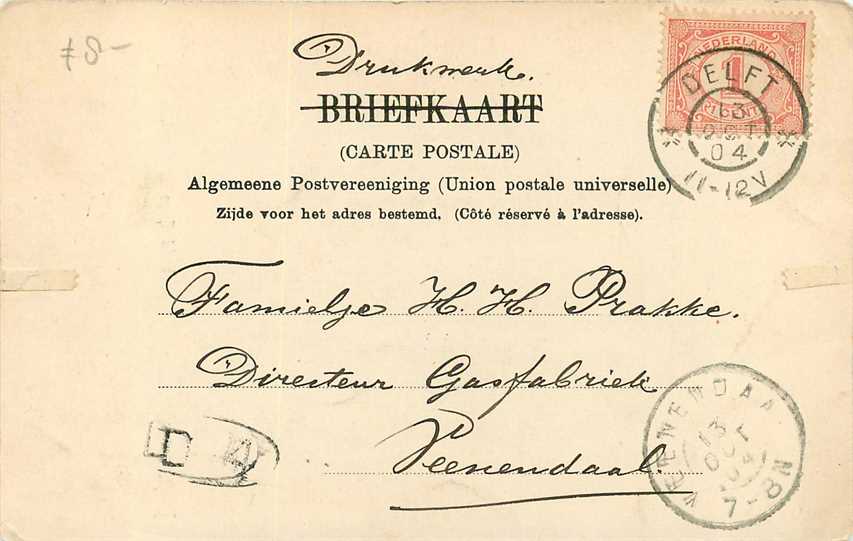 ƒ8-
Drukwerk.
BRIEFKAART
(CARTE POSTALE)
Algemeene Postvereeniging (Union postale universelle)
Zijde voor het adres bestemd. (Côté réservé à l'adresse).
NEDERLAND
1
CENT
DELFT
13
OCT
04
11-12V
Familje H. H. Prakke.
Directeur Gasfabriek
Veenendaal.
VEENENDAA
13
OCT
04
7-8N